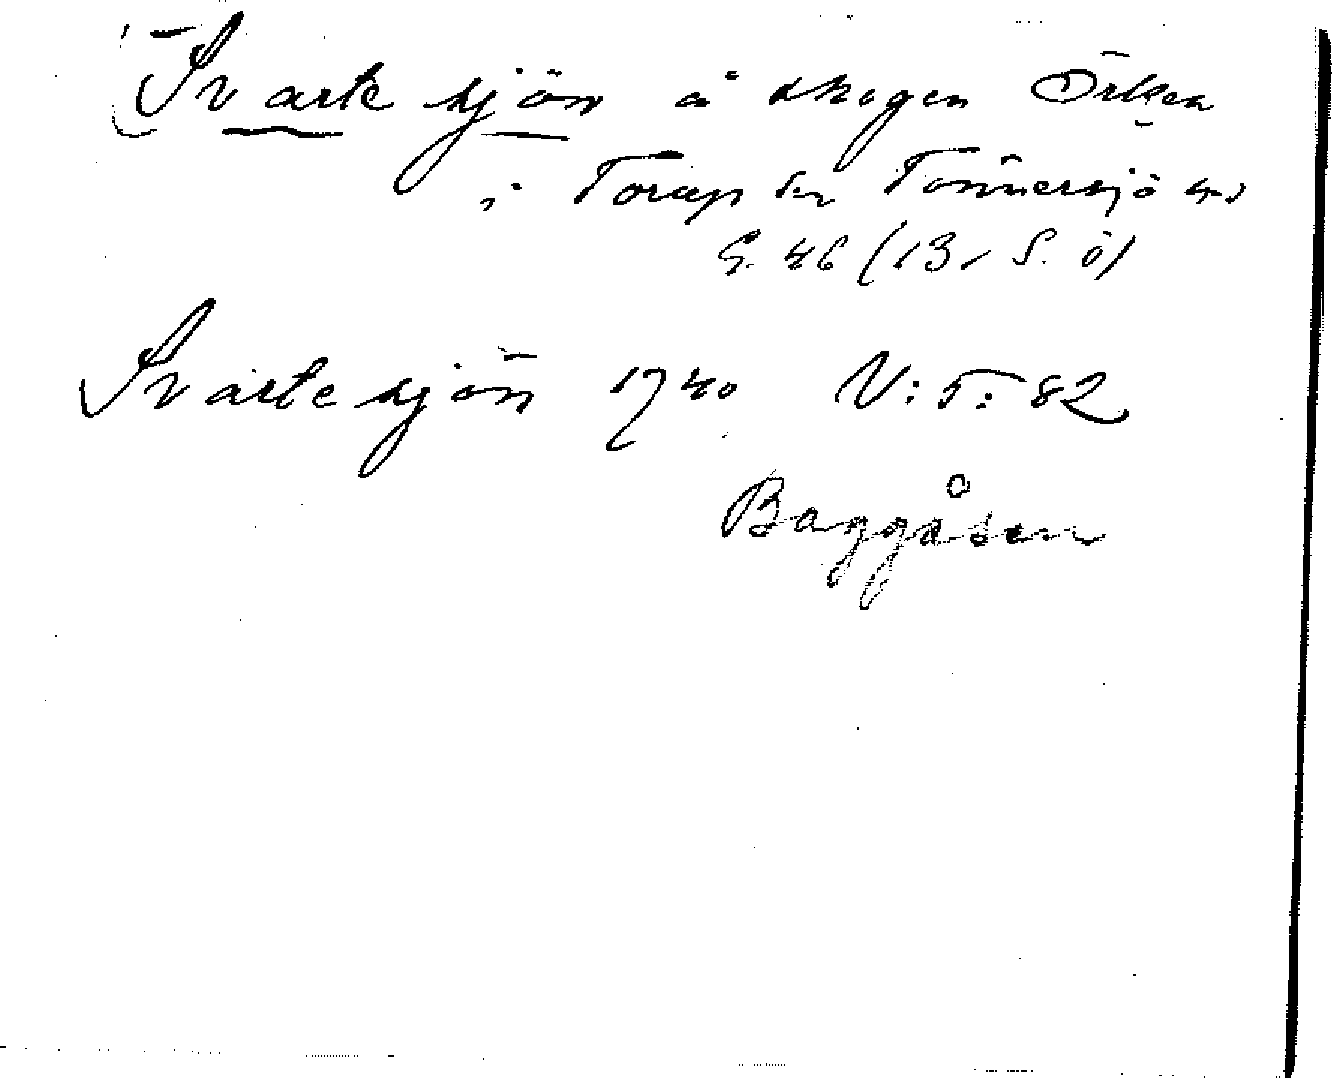 Svarte sjön å skogen Örken
i Torup sn Tönnersjö hd
G. 46 (13, S. ö)
Svarte sjön 1740 V: 5: 82
Baggåsen